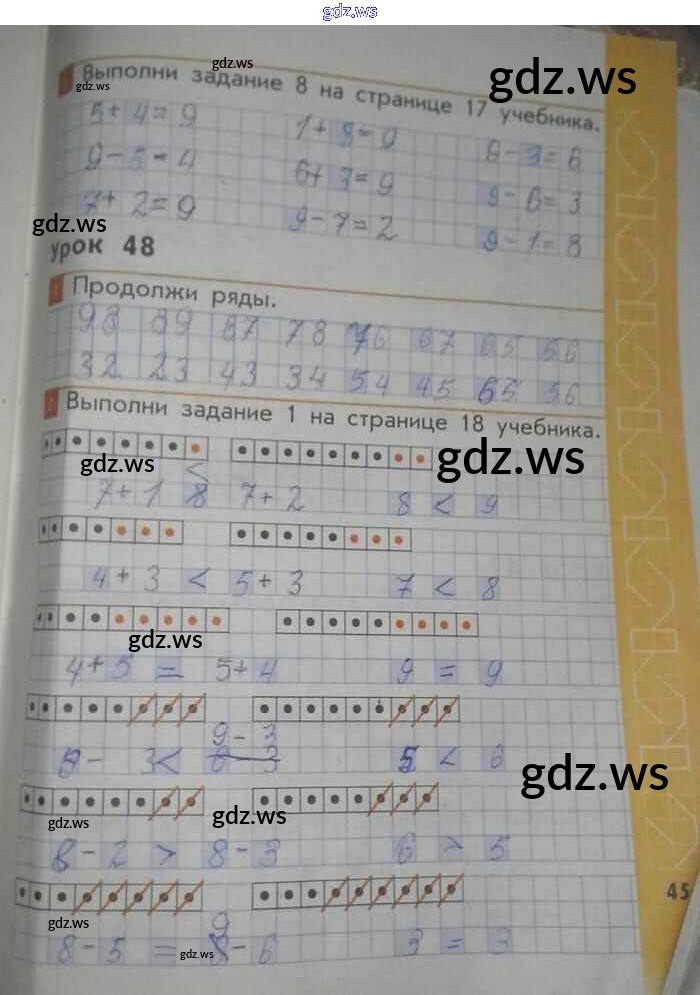 gdz.ws
1 Выполни задание 8 на странице 17 учебника.
5 + 4 = 9 1 + 8 = 9 9 - 3 = 6
9 - 5 = 4 6 + 3 = 9 9 - 6 = 3
7 + 2 = 9 9 - 7 = 2 9 - 1 = 8
урок 48
1 Продолжи ряды.
98 89 87 78 76 67 65 56
32 23 43 34 54 45 65 56
2 Выполни задание 1 на странице 18 учебника.
7 + 1 < 7 + 2 8 < 9
4 + 3 < 5 + 3 7 < 8
4 + 5 = 5 + 4 9 = 9
8 - 3 < 9 - 3 5 < 6
8 - 2 > 8 - 3 6 > 5
8 - 5 = 9 - 6 3 = 3
45
gdz.ws
gdz.ws
gdz.ws
gdz.ws
gdz.ws
gdz.ws
gdz.ws
gdz.ws
gdz.ws
gdz.ws
gdz.ws
gdz.ws